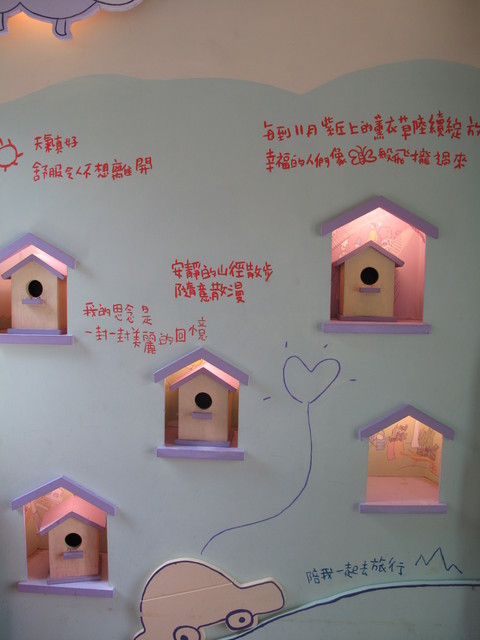 天氣真好
舒服令人不想離開
每到11月 紫丘上的薰衣草陸續綻放
幸福的人們像 般飛擁過來
安靜的山徑散步
隨意散漫
我的思念是
一封一封美麗的回憶
陪我一起去旅行